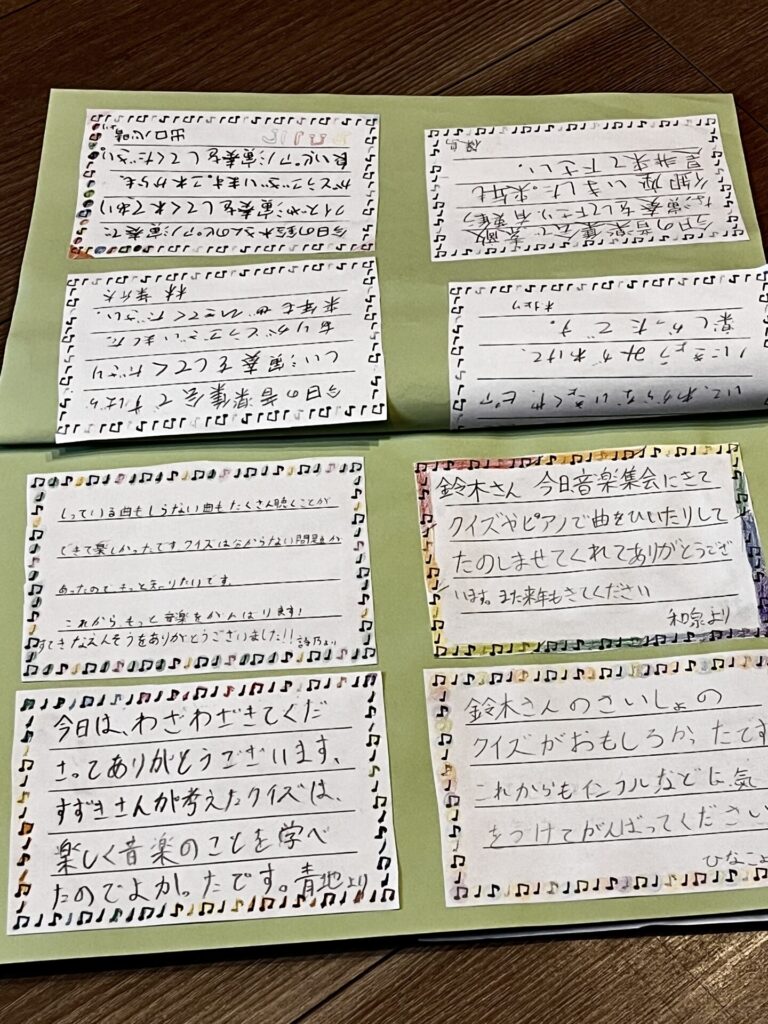 今日の鈴木さんのピアノ演奏で
クイズや演奏をしてくれてあり
がとうございます。これからも、
良いピアノ演奏をしてください。
出口
より
今日の音楽集会で、素敵
な演奏をして下さり、有難う
御座いました。来年も
是非来て下さい。
今日の音楽集会ですばら
しい演奏をしてくださり
ありがとうございました。
来年もぜひきてください。
林
いて、わからないきょくや、ピア
ノにきょうみがわけて、
楽しかったです。
より
しっている曲もしらない曲もたくさん聴くことが
できて楽しかったです。クイズは分からない問題が
あったのでもっと知りたいです。
これからもっと音楽をがんばります!
すてきなえんそうをありがとうございました!!詩乃より
鈴木さん 今日音楽集会にきて
クイズやピアノで曲をひいたりして
たのしませてくれてありがとうござ
います。また来年もきてください
和泉より
今日は、わざわざきてくだ
さってありがとうございます、
すずきさんが考えたクイズは、
楽しく音楽のことを学べ
たのでよかったです。青地より
鈴木さんのさいしょの
クイズがおもしろかったです
これからもインフルなどに気
をつけてがんばってください
ひなこよ